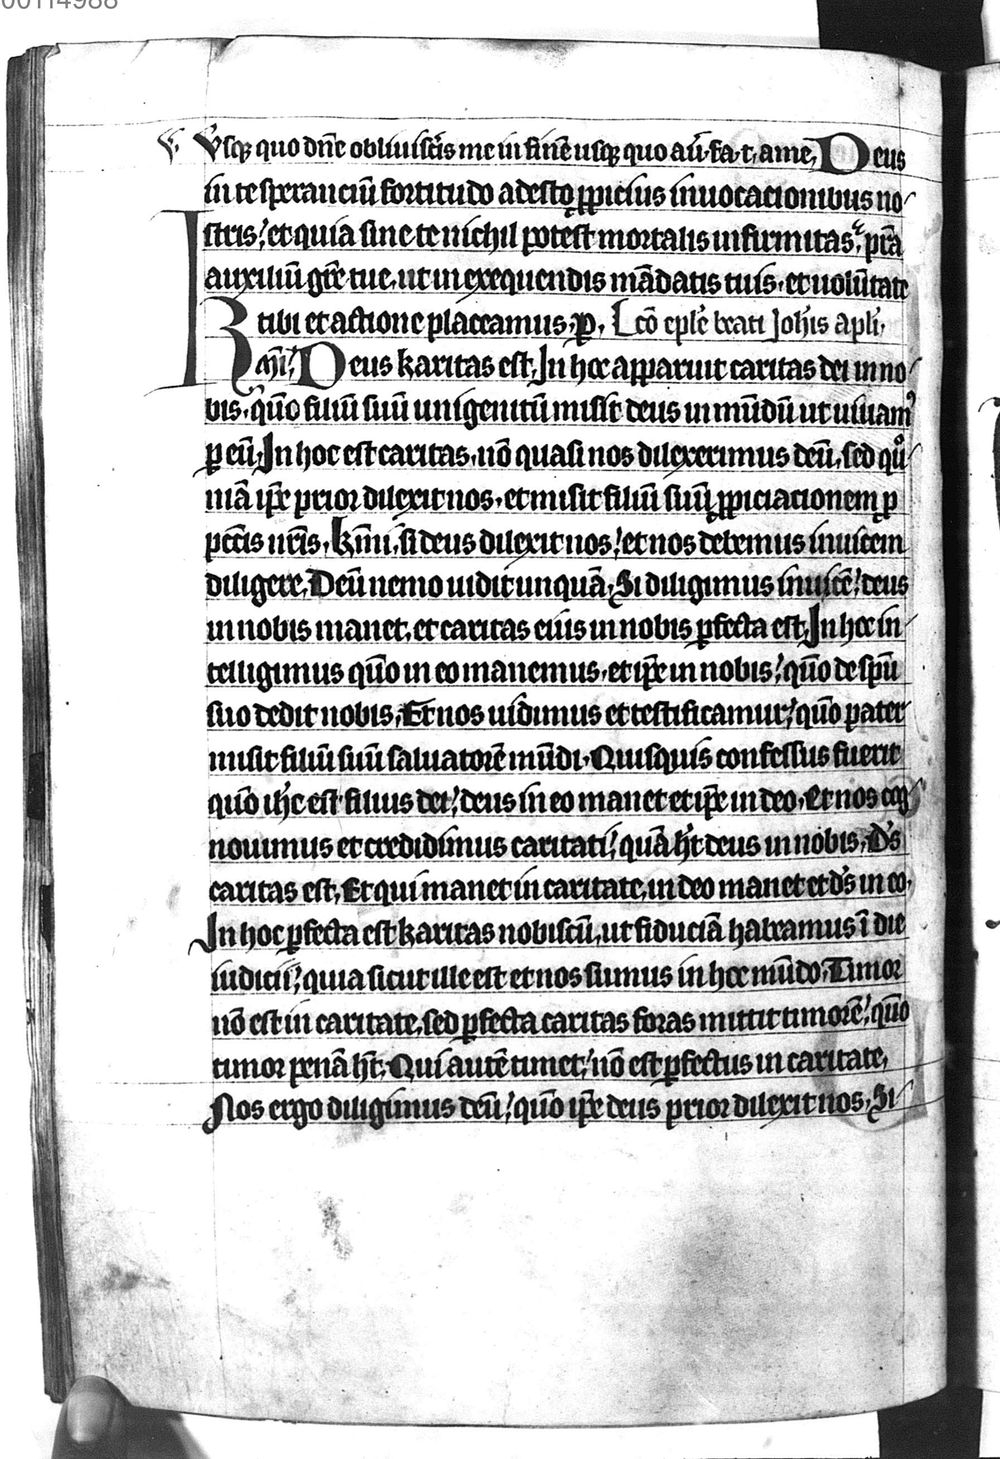 00114988
V. Vsq; quo dn̄e obliuiscēis me in finē usq; quo au̅. fa. t. a me. Deus
in te sperantiū fortitudo adesto ꝓpicius inuocationibus no
stris. et quia sine te nichil potest mortalis infirmitas. p̄ta
auxiliū gr̄e tue. ut in exequendis mādatis tuis. et uolūtate
tibi et actione placeamus. ꝑ. Lc̄o ep̄le beati Joh̄is apl̄i.
Km̄i. Deus karitas est. In hoc apparuit caritas dei in no
bis. qm̄o filiū suū unigenitū misit deus in mūdū ut uiuam᷒
ꝑ eū. In hoc est caritas. nō quasi nos dilexerimus deū. sed qūo
niā ip̄e prior dilexit nos. et misit filiū suū ꝓpiciacionem ꝓ
pcc̄is nr̄is. Km̄i. si deus dilexit nos. et nos debemus inuicem
diligere. Deū nemo uidit unquā. Si diligimus inuicē. deus
in nobis manet. et caritas eius in nobis ꝑfecta est. In hoc in
telligimus qm̄o in eo manemus. et ip̄e in nobis. qm̄o de spū
suo dedit nobis. Et nos uidimus et testificamur. qm̄o pater
misit filiū suū saluatorē mūdi. Quisquis confessus fuerit
qm̄o ih̄c est filius dei. deus in eo manet et ip̄e in deo. Et nos cog
nouimus et credidimus caritati. quā h̄t deus in nobis. Ds̄
caritas est. Et qui manet in caritate. in deo manet et ds̄ in eo.
In hoc ꝑfecta est karitas nobiscū. ut fiduciā habeamus ī die
iudicii. quia sicut ille est et nos sumus in hoc mūdo. Timor
nō est in caritate. sed ꝑfecta caritas foras mittit timorē. qm̄o
timor penā h̄t. Qui autē timet. nō est ꝑfectus in caritate.
Nos ergo diligimus deū. qm̄o ip̄e deus prior dilexit nos. Si